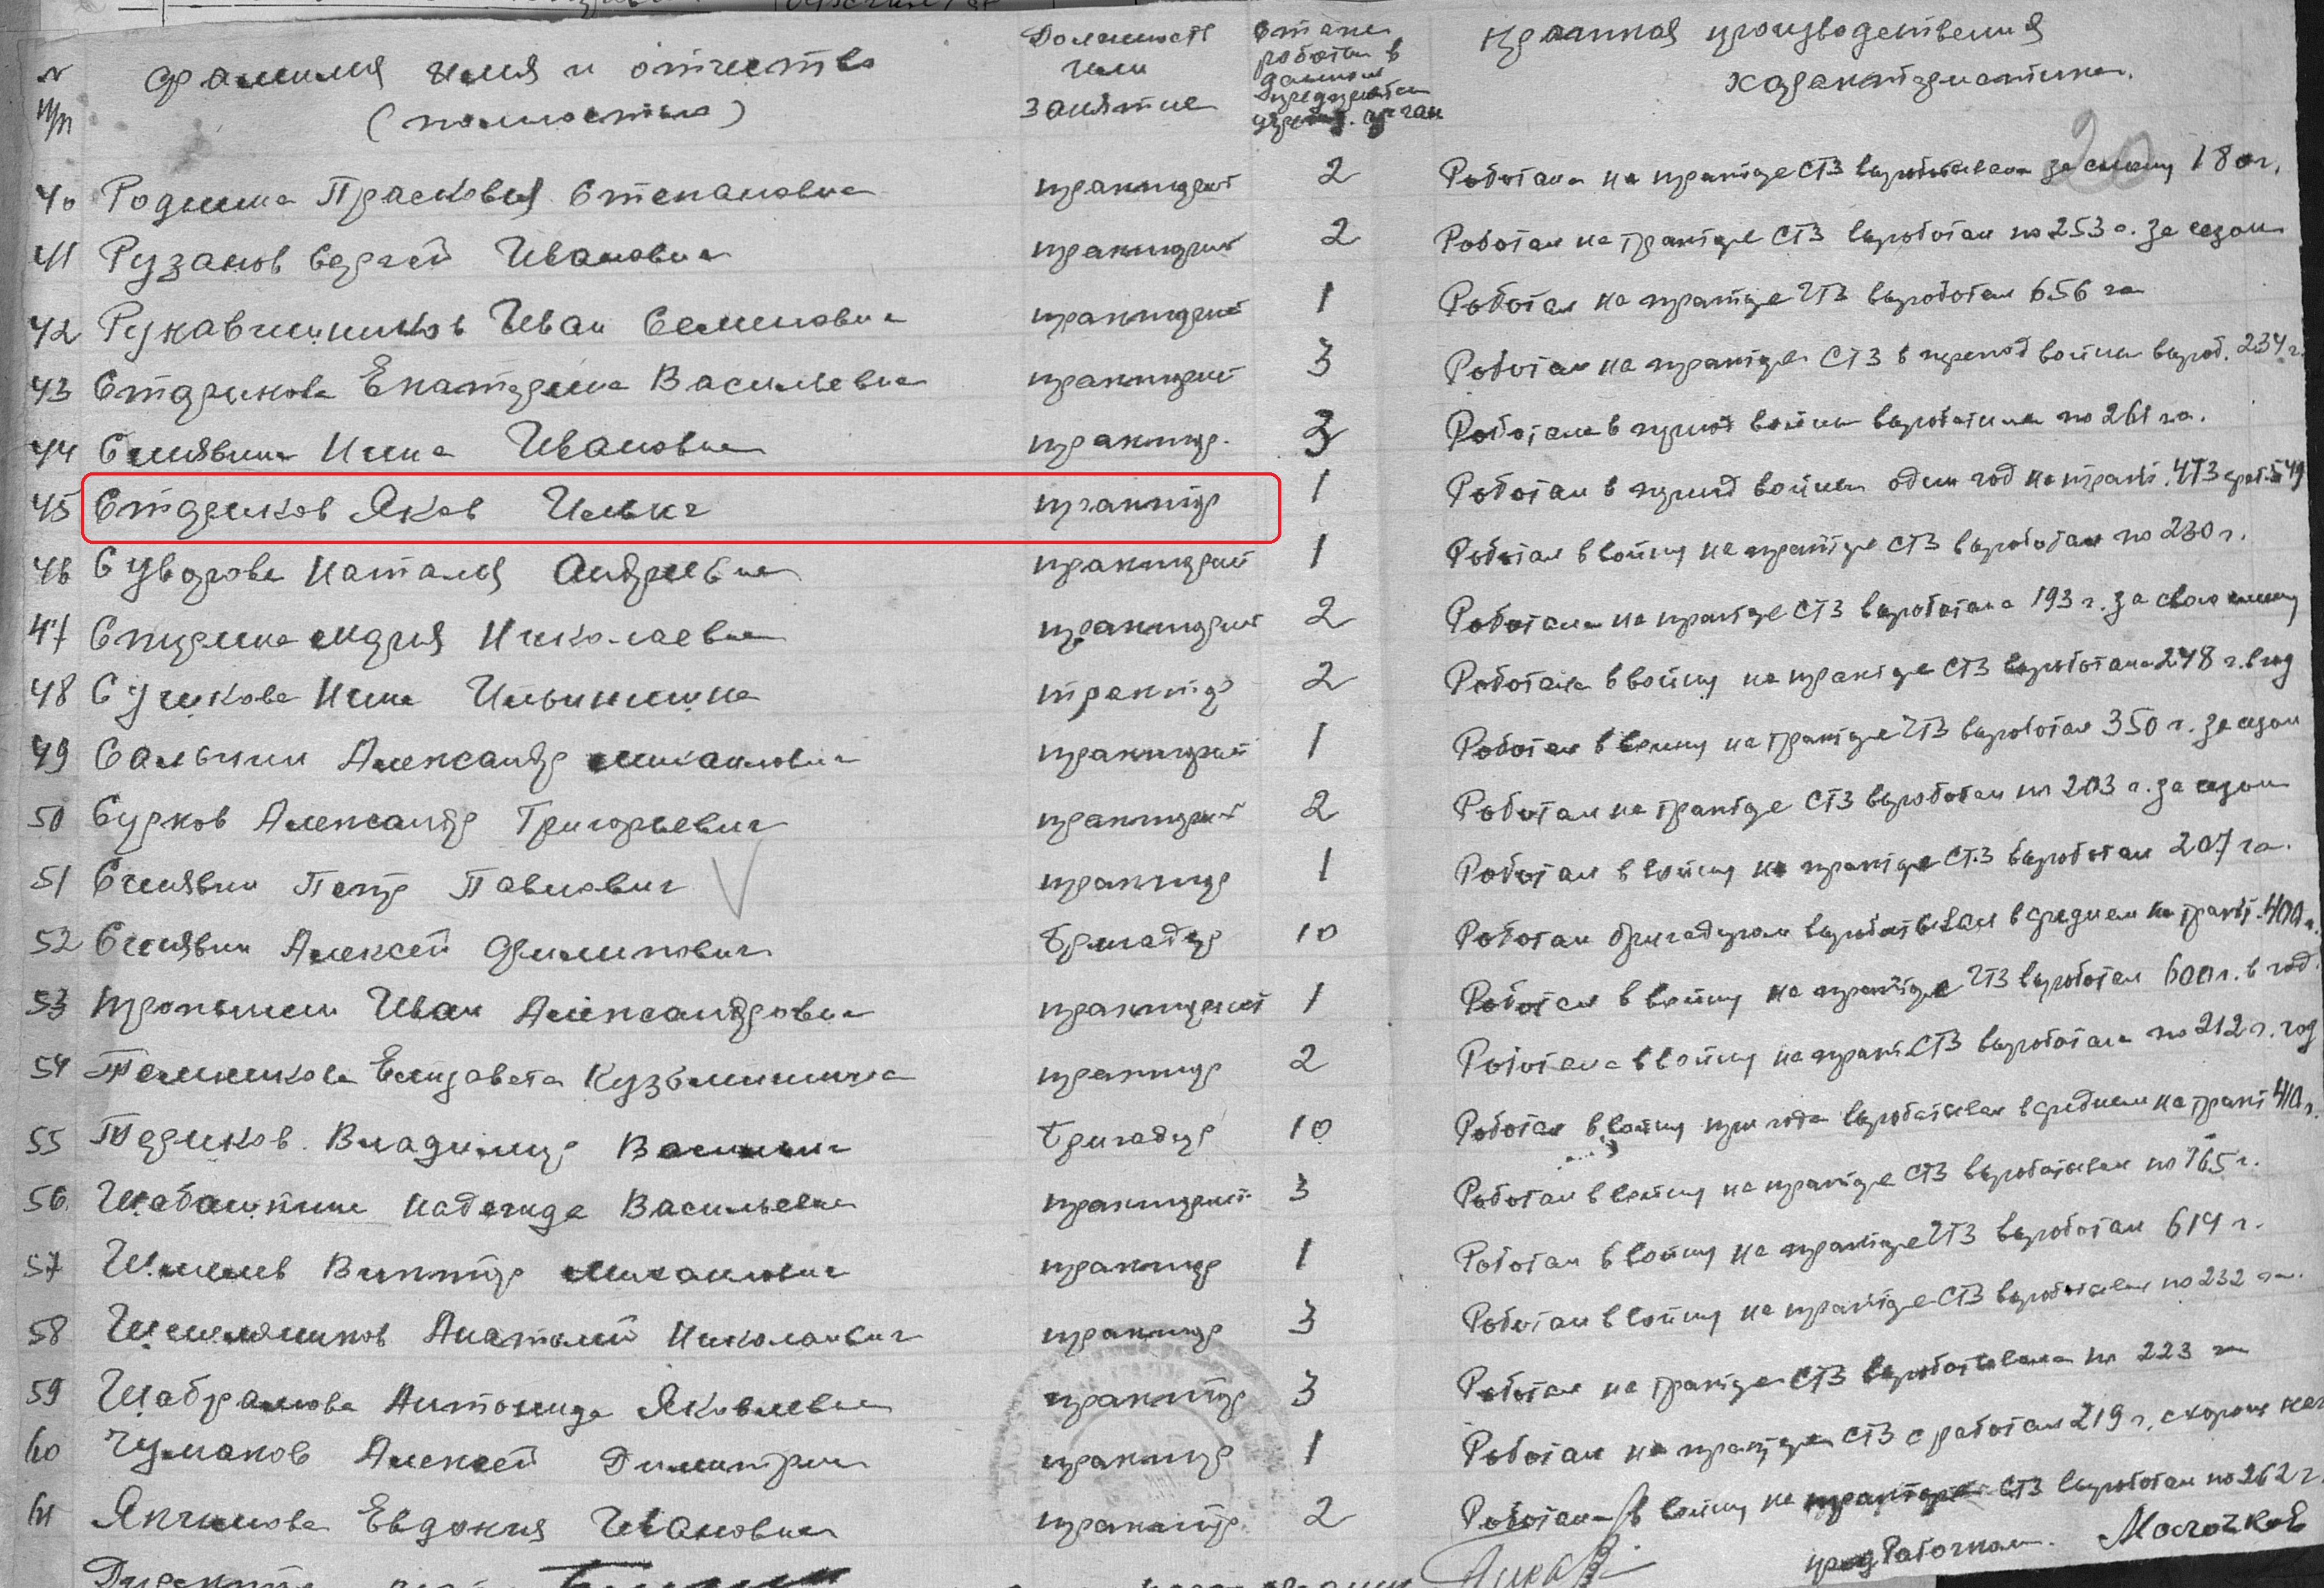 № п/п фамилия имя и отчество (полностью) Должность или занятие Стаж работы в данном предприятии Краткая производственная характеристика.
40 Родина Прасковья Степановна тракторист 2 Работала на тракторе СТЗ вырабатывала за смену 180 г.
41 Рузанов Сергей Иванович тракторист 2 Работал на тракторе СТЗ выработал по 253 г. за сезон
42 Рукавишников Иван Семенович тракторист 1 Работал на тракторе ЧТЗ выработал 656 га
43 Старикова Екатерина Васильевна тракторист 3 Работала на тракторе СТЗ в период войны вырот. 234 г.
44 Синявина Нина Ивановна трактор. 3 Работала в период войны выработала по 261 га.
45 Стариков Яков Ильич трактор 1 Работал в период войны один год на тракт. ЧТЗ 549
46 Суворова Наталия Андреевна тракторист 1 Работал в войну на тракторе СТЗ выработал по 230 г.
47 Спирина Мария Николаевна тракторист 2 Работала на тракторе СТЗ выработала 193 г. за свою смену
48 Сушкова Нина Ильинична трактор 2 Работала в войну на тракторе СТЗ выработала 248 г. в год
49 Сальников Александр Михайлович тракторист 1 Работал в войну на тракторе ЧТЗ выработал 350 г. за сезон
50 Сурков Александр Григорьевич тракторист 2 Работал на тракторе СТЗ выработал по 203 г. за сезон
51 Синявин Петр Павлович трактор 1 Работал в войну на тракторе СТЗ выработал 207 га.
52 Синявин Алексей Филиппович бригадир 10 Работал бригадиром вырабатывал в среднем на тракт. 400 г.
53 Иван Александрович тракторист 1 Работал в войну на тракторе ЧТЗ выработал 600 г. в год
54 Елизавета Кузьминична трактор 2 Работала в войну на тракт. СТЗ выработала по 212 г. год
55 Владимир Васильевич бригадир 10 Работал в войну три года вырабатывал в среднем на тракт 410 г.
56 Шабашкина Надежда Васильевна тракторист 3 Работал в войну на тракторе СТЗ вырабатывал по 165 г.
57 Виктор Михайлович трактор 1 Работал в войну на тракторе ЧТЗ выработал 614 г.
58 Анатолий Николаевич трактор 3 Работал в войну на тракторе СТЗ вырабатывал по 232 га.
59 Шабрамова Антонида Яковлевна трактор 3 Работал на тракторе СТЗ вырабатывала по 223 га
60 Чумаков Алексей Димитрич трактор 1 Работал на тракторе СТЗ сработал 219 г.
61 Евдокия Ивановна трактор 2 Работала в войну на тракторе СТЗ выработал по 262 г.
пред Рабочком.